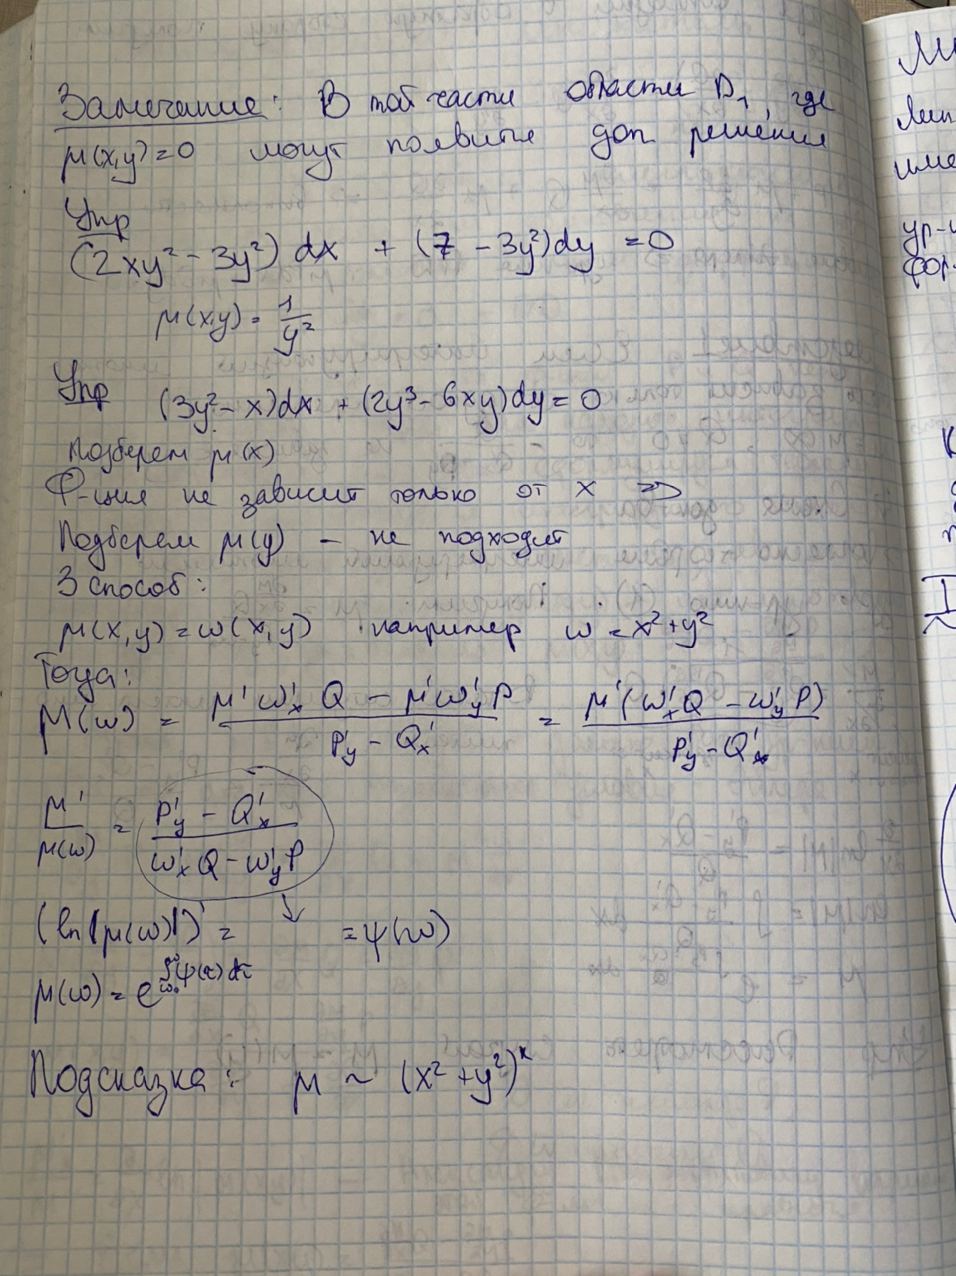 Замечание: В той части области D₁, где
μ(x,y)=0 могут появится доп решения
Упр
(2xy² - 3y²) dx + (7 - 3y²)dy = 0
μ(x,y) = 1/y²
Упр (3y² - x)dx + (2y³ - 6xy)dy = 0
Подберем μ(x)
Ф-ция не зависит только от x =>
Подберем μ(y) - не подходит
3 способ:
μ(x,y) = ω(x,y) например ω = x² + y²
Тогда:
μ(ω) = (μ'ω'ₓ Q - μ'ω'_y P)/(P'_y - Q'ₓ) = (μ'(ω'ₓQ - ω'_y P))/(P'_y - Q'ₓ)
μ'/μ(ω) = (P'_y - Q'ₓ)/(ω'ₓ Q - ω'_y P)
(ln|μ(ω)|)' = ↓ = ψ(ω)
μ(ω) = e
Подсказка: μ ~ (x² + y²)ᵏ
Ли
Лин
име
ур-
фор-
К